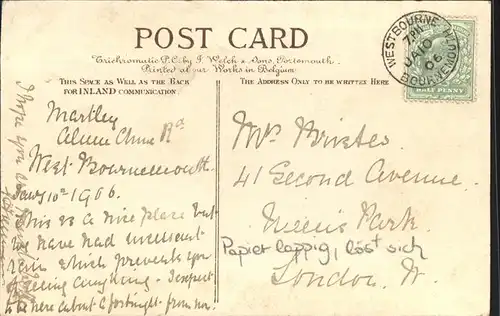 POST CARD
Trichromatic P.C. by J. Welch & Sons, Portsmouth.
Printed at our Works in Belgium
THIS SPACE AS WELL AS THE BACK
FOR INLAND COMMUNICATION.
THE ADDRESS ONLY TO BE WRITTEN HERE
WESTBOURNE
BOURNEMOUTH
7 PM
JA 10
06
HALF PENNY
Martley
Alum Chine Rd
West Bournemouth.
Jany 10th 1906.
This is a nice place but
we have had incessant
rain which prevents you
seeing anything. I expect
to be here about a fortnight from now.
I hope you are
Mrs
41 Second Avenue.
Queens Park.
Papier lappig, löst sich
London. W.